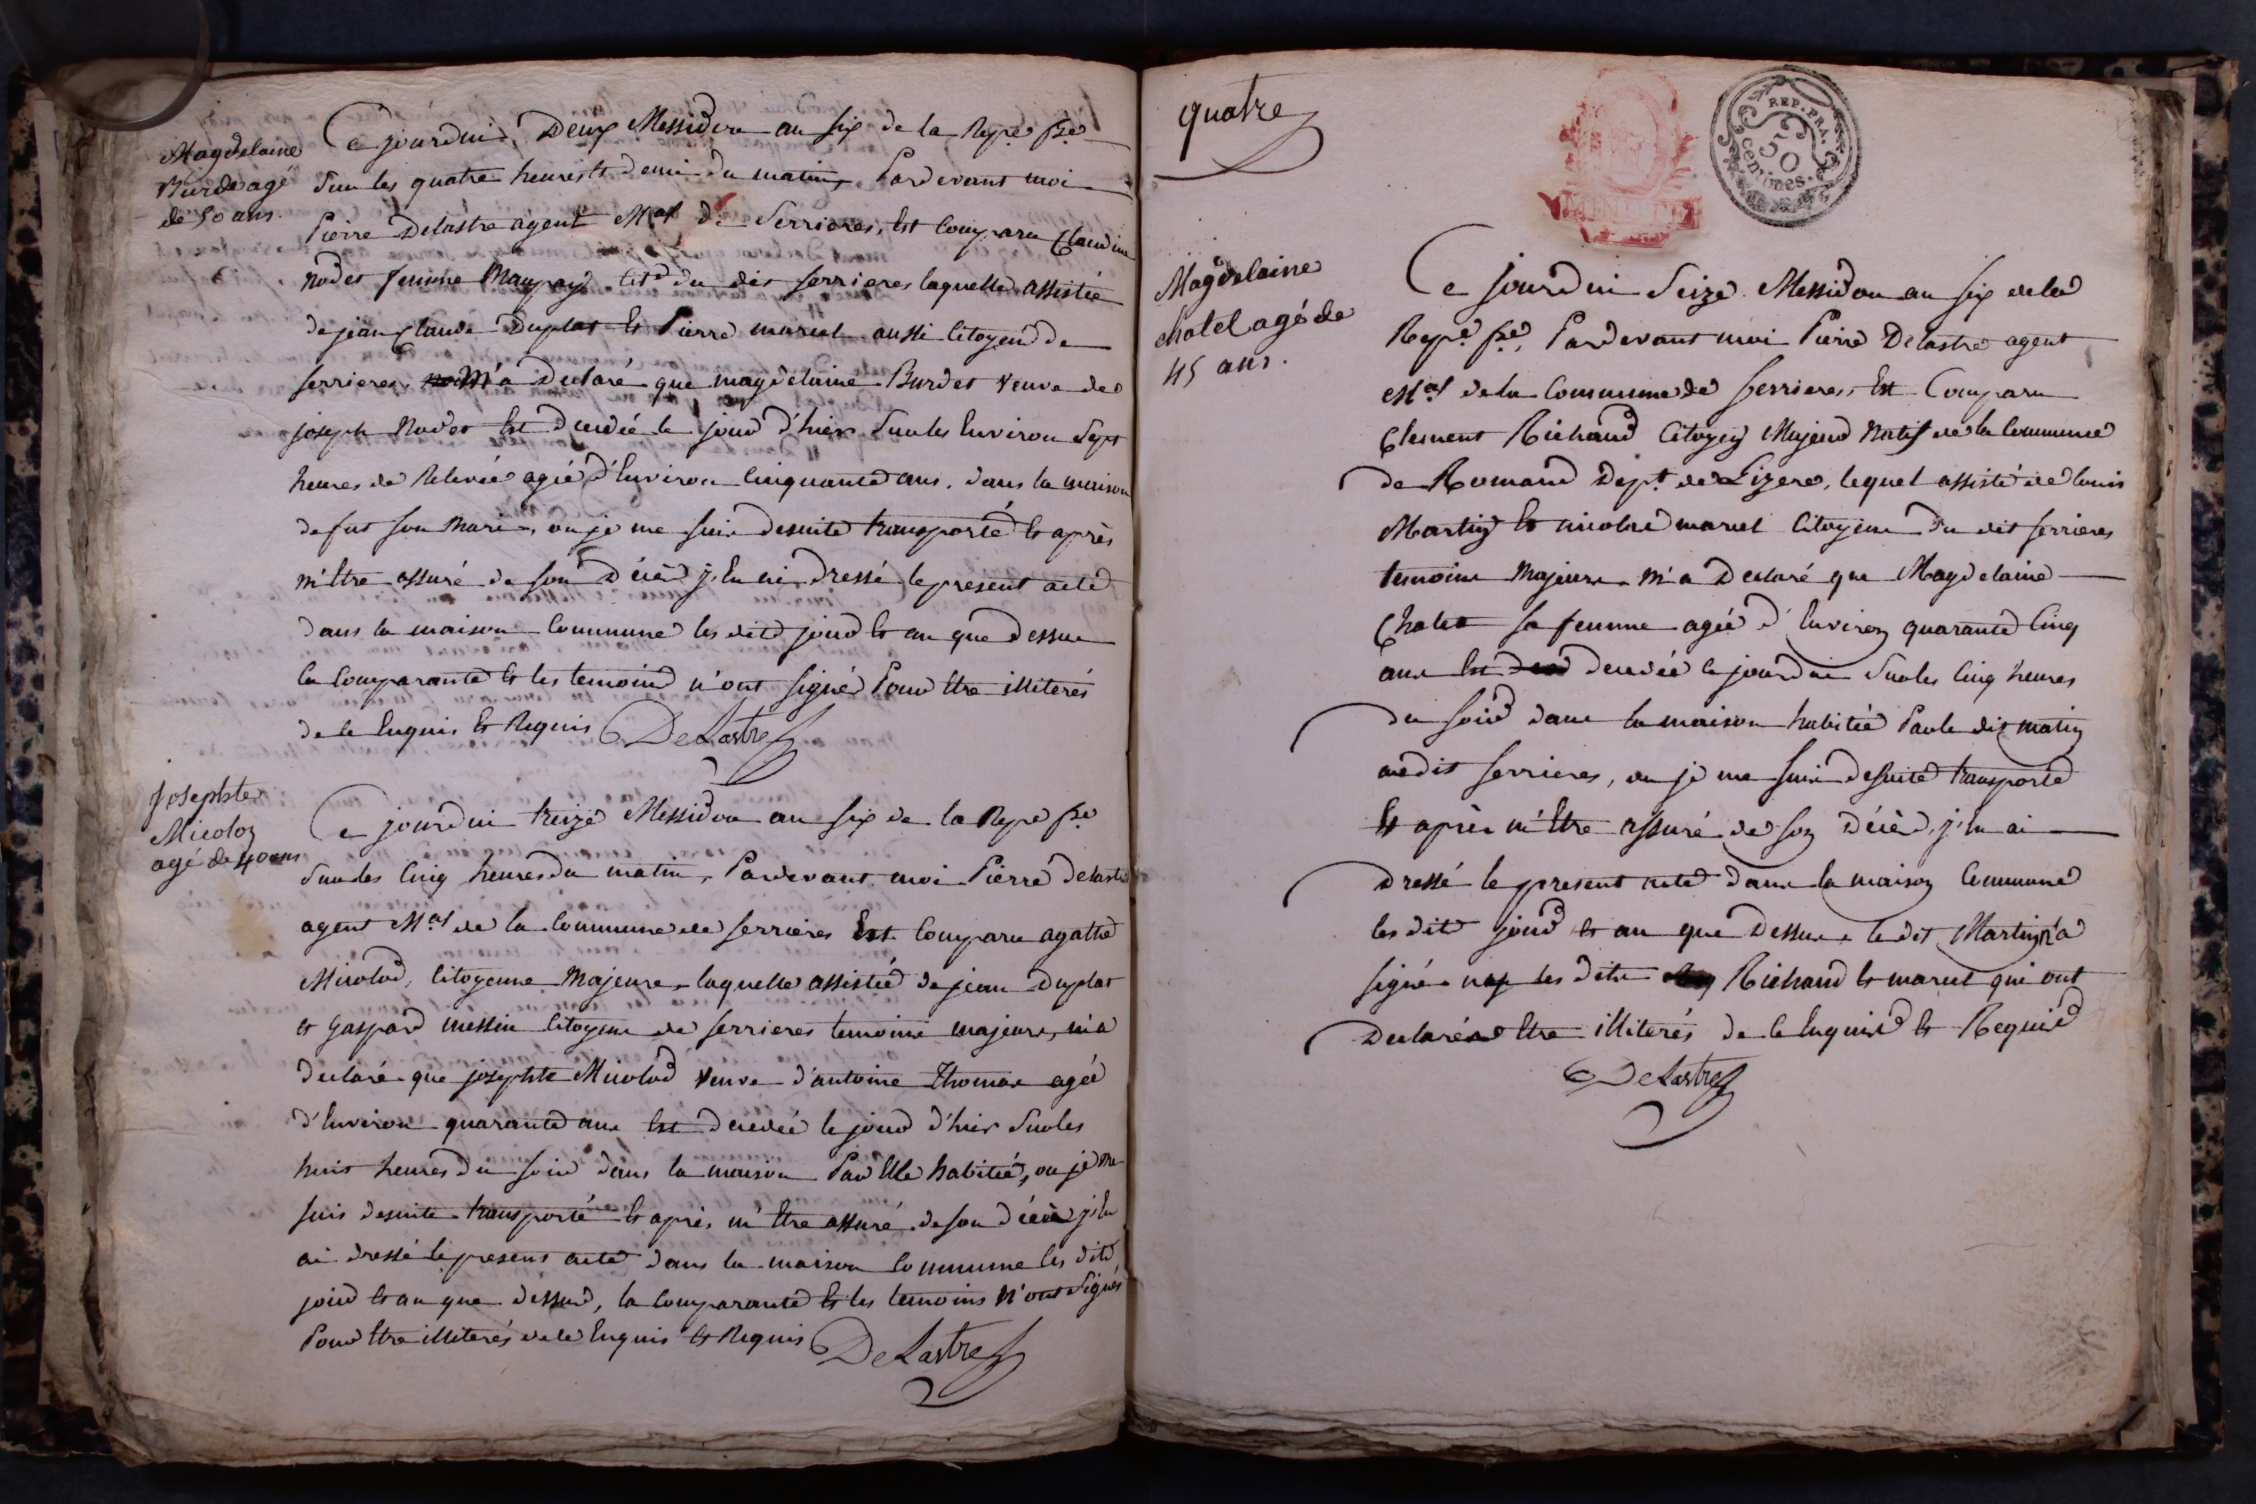 Magdelaine
Burde agé
de 50 ans.
Ce jourdui, Deux Messidor an six de la Repe. fse.
Sur les quatre heures & demi du matin, Pardevant moi
Pierre Delastre agent Mal de Serrieres, Est Comparu Claudine
nodet femme Maupay Citne du dit serrieres laquelle assistée
de jean Claude Duplat Et Pierre marcel aussi Citoyen de
serrieres, m'a Declaré que magdelaine Burdet veuve de
joseph Nodet Est Decedée le jour d'hier Sur les Environ Sept
heures de Relevée agée d'Environ Cinquante ans, dans la maison
de fut son Mari, ou je me suis desuite transporté Et après
m'Etre assuré de son Décès j'en ai Dressé le present acte
Dans la maison Commune les dits jour Et an que Dessus
la Comparante Et les temoins n'ont signé Pour Etre illiterés
de le Enquis Et Requis DeLastre
josephte
Micolon
agé de 40 ans
Ce jourdui treize Messidor an six de la Repe fse
Sur les Cinq heures du matin, Pardevant moi Pierre delastre
agent Mal de la Commune de serrieres Est Comparu agathe
Micolod, Citoyenne Majeure, laquelle assistée de jean Duplat
et Gaspard messin Citoyens de serrieres temoins majeurs, m'a
declaré que josephte Micolod veuve d'antoine Thomas agée
d'Environ quarante ans Est decedée le jour d'hier Sur les
huit heures du soir dans la maison Par Elle habitée, ou je me
suis desuite transporté Et après m'Etre assuré de son décès j'en
ai dressé le present acte dans la maison Commune les dits
jour Et an que dessus, la Comparante Et les temoins n'ont signés
Pour Etre illiterés de le Enquis Et Requis DeLastre
quatre
REP. FRA.
50
centimes.
Magdelaine
chatel agé de
45 ans.
Ce jourdui Seize Messidor an six de la
Repe. fse, Pardevant moi Pierre Delastre agent
Mal de la Commune de serrieres, Est Comparu
Clement Richard Citoyen Majeur Natif de la Commune
de Romand Dept. de Lizere, lequel assisté de louis
Martin Et nicolas marcel Citoyens du dit serrieres
temoins Majeurs, m'a Declaré que Magdelaine
Chatet sa femme agée d'Environ quarante Cinq
ans Est decedée ce jourdui Sur les Cinq heures
du soir dans la maison habitée Par le dit martin
audit serrieres, ou je me suis desuite transporté
Et après m'Etre assuré de son Décès, j'en ai
Dressé le present acte dans la maison Commune
les dits jour Et an que Dessus, le dit Martin n'a
signé non les dits Richard Et marcel qui ont
Declarés Etre illiterés de le Enquis Et Requis
DeLastre